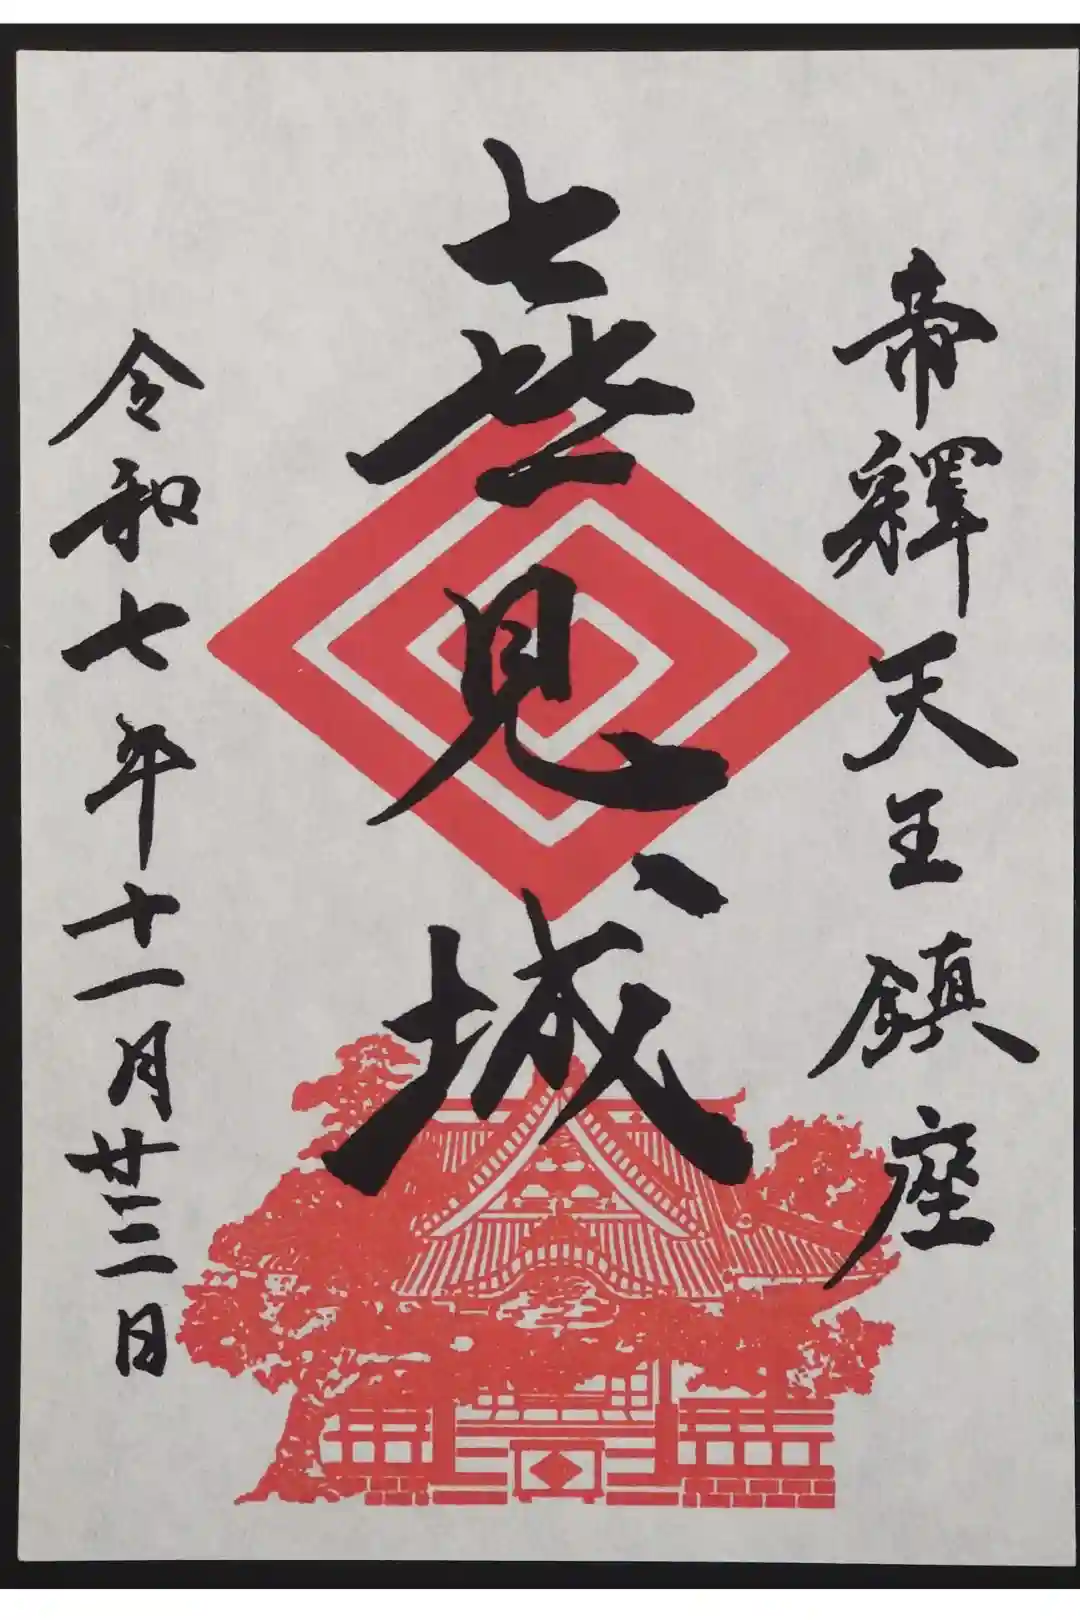 帝釋天王鎮座
㐂見城
令和七年十一月廿三日